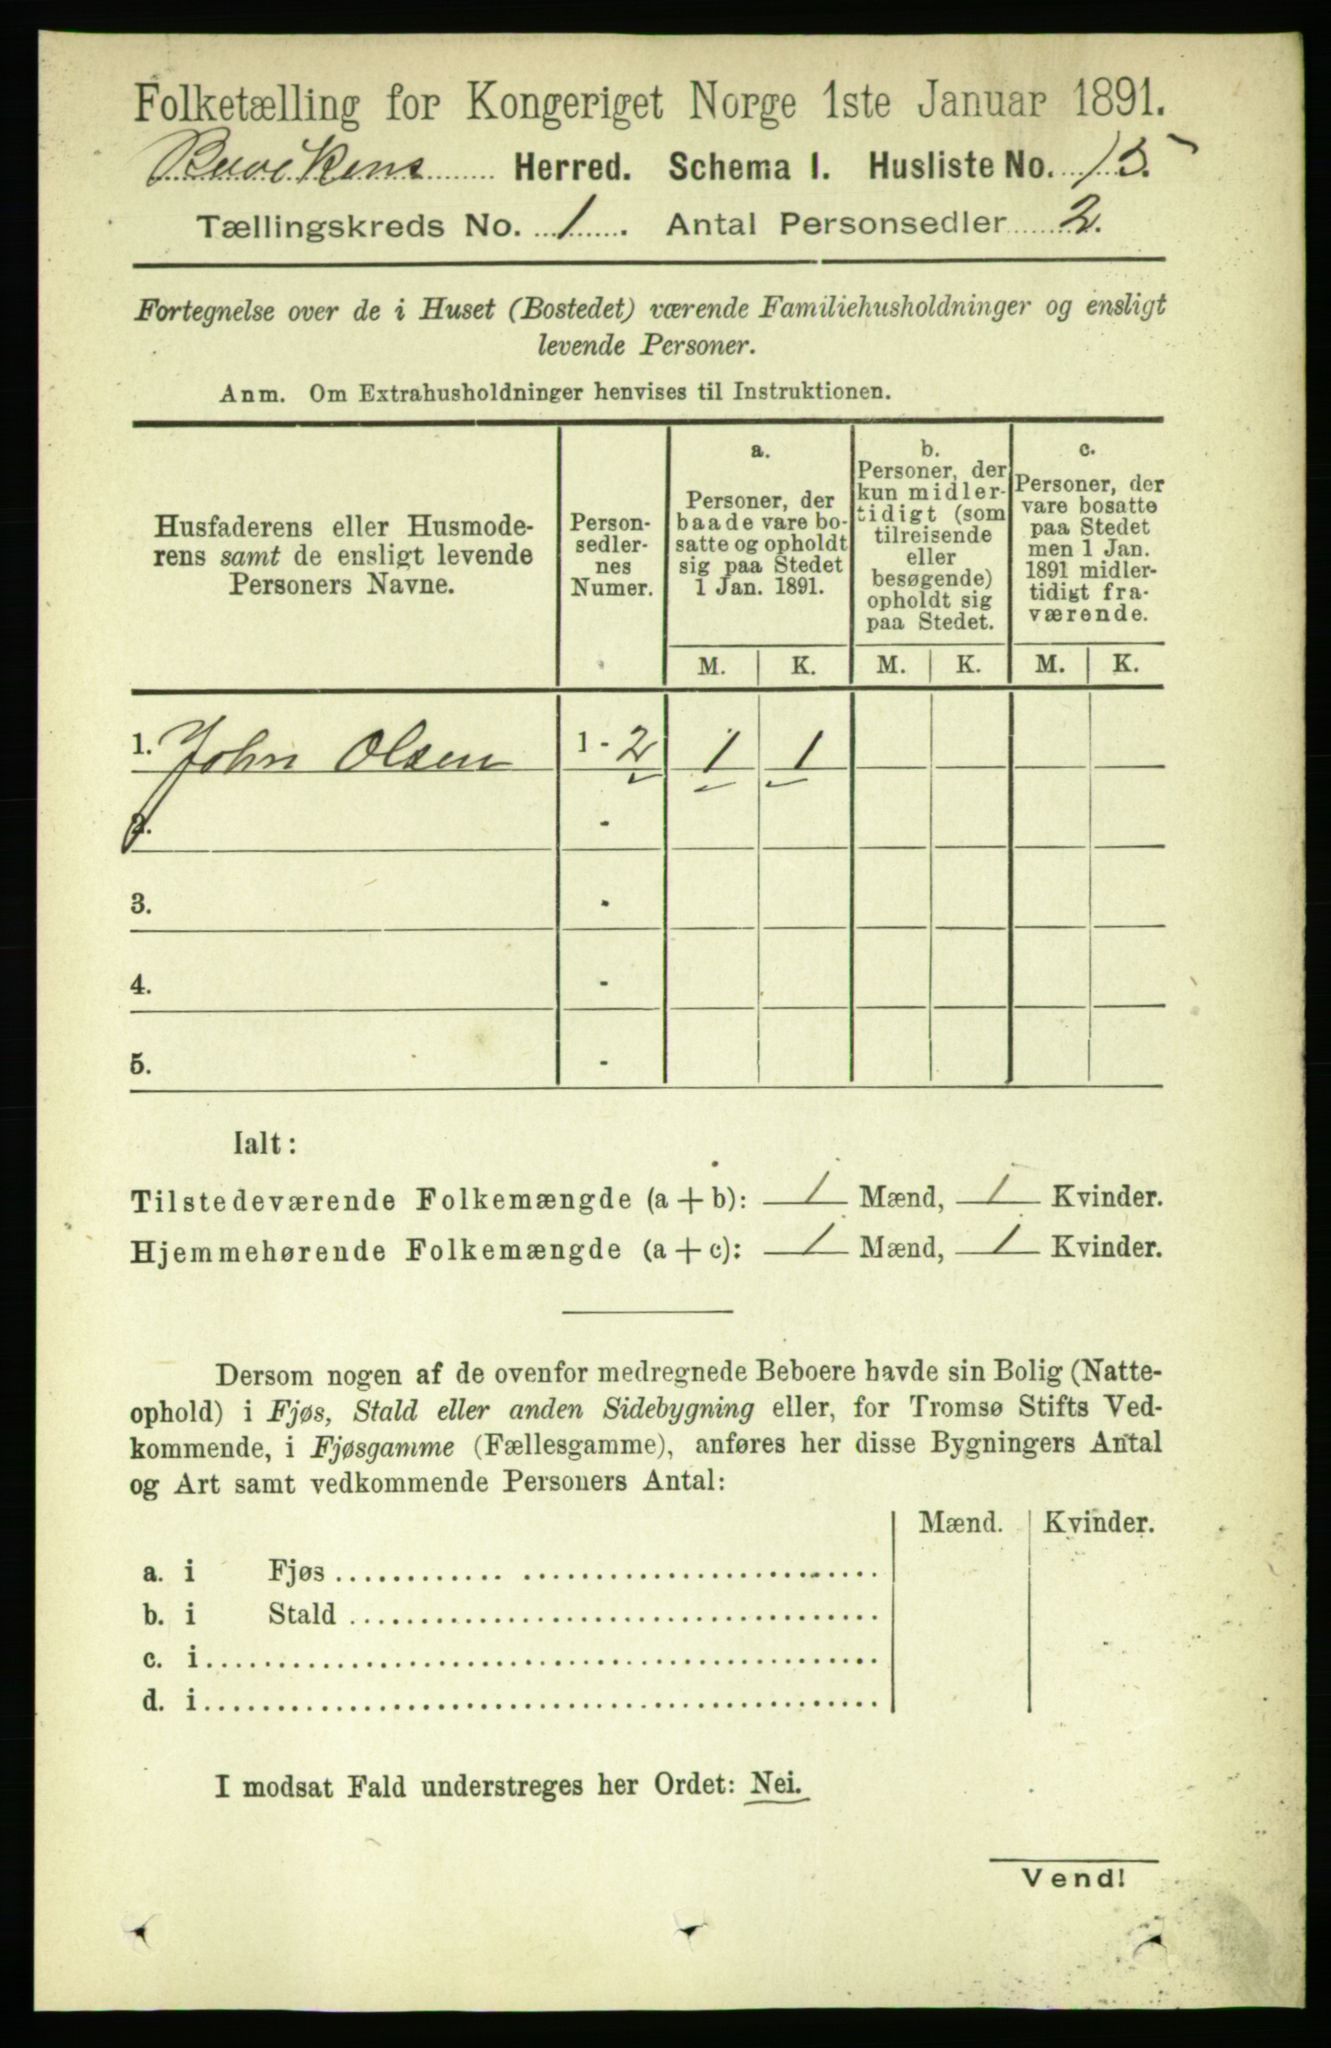 Folketælling for Kongeriget Norge 1ste Januar 1891.
Buvikens Herred. Schema I. Husliste No. 15.
Tællingskreds No. 1. Antal Personsedler 2.
Fortegnelse over de i Huset (Bostedet) værende Familiehusholdninger og ensligt
levende Personer.
Anm. Om Extrahusholdninger henvises til Instruktionen.
Husfaderens eller Husmode-
rens samt de ensligt levende
Personers Navne.
Person-
sedler-
nes
Numer.
a.
Personer, der
baade vare bo-
satte og opholdt
sig paa Stedet
1 Jan. 1891.
b.
Personer, der
kun midler-
tidigt (som
tilreisende
eller
besøgende)
opholdt sig
paa Stedet.
c.
Personer, der
vare bosatte
paa Stedet
men 1 Jan.
1891 midler-
tidigt fra-
værende.
M. K. M. K. M. K.
1. John Olsen 1 - 2 1 1
2. -
3. -
4. -
5. -
Ialt:
Tilstedeværende Folkemængde (a + b): 1 Mænd, 1 Kvinder.
Hjemmehørende Folkemængde (a + c): 1 Mænd, 1 Kvinder.
Dersom nogen af de ovenfor medregnede Beboere havde sin Bolig (Natte-
ophold) i Fjøs, Stald eller anden Sidebygning eller, for Tromsø Stifts Ved-
kommende, i Fjøsgamme (Fællesgamme), anføres her disse Bygningers Antal
og Art samt vedkommende Personers Antal:
Mænd. Kvinder.
a. i Fjøs
b. i Stald
c. i
d. i
I modsat Fald understreges her Ordet: Nei.
Vend!